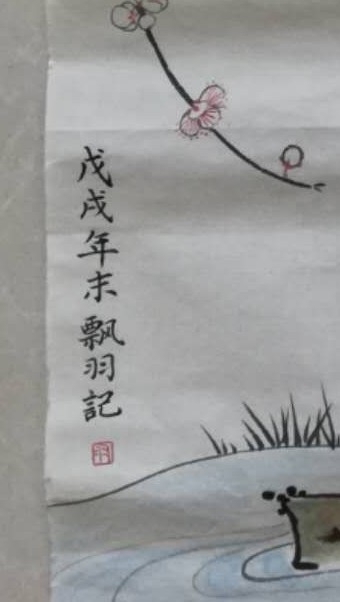 戊戌年末飄羽記